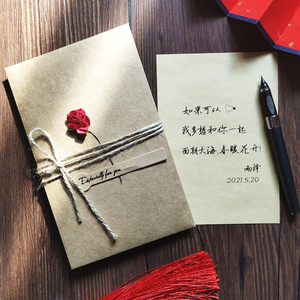 Especially for you
如果可以
我多想和你一起
面朝大海,春暖花开!
雨泽
2021.5.20